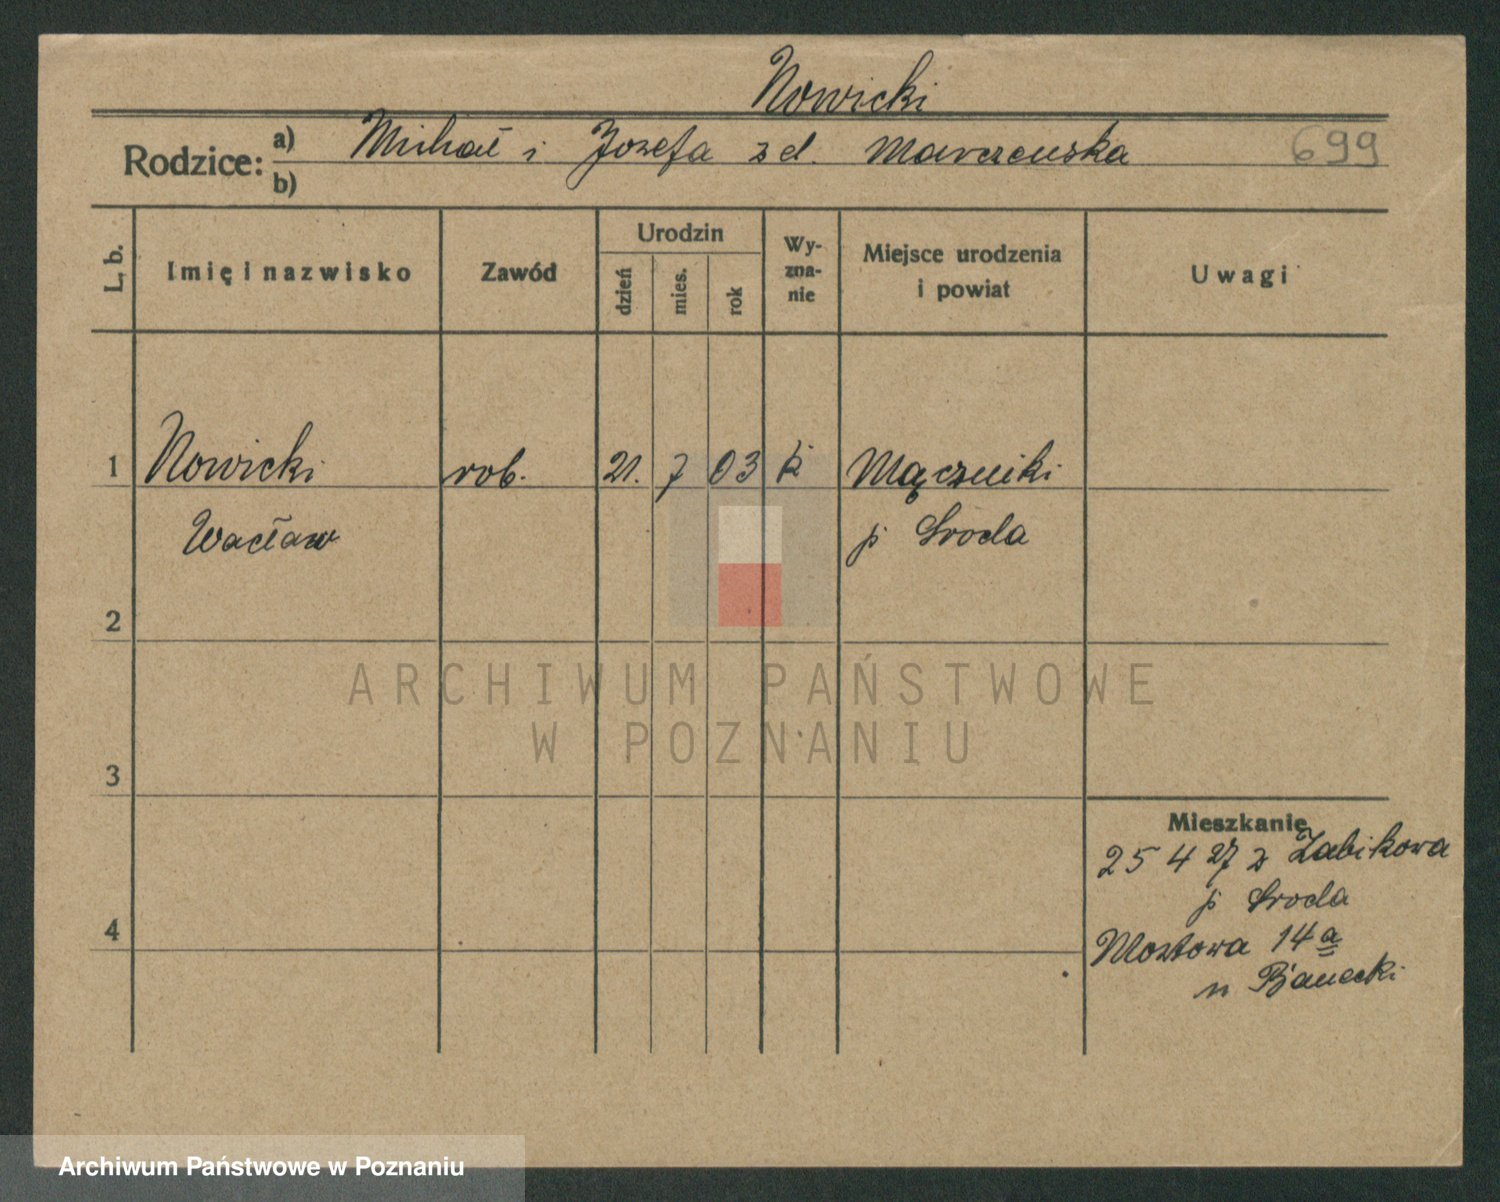 Nowicki
Rodzice: a) Michał i Jozefa z d. Marczewska 699
b)
L. b. Imię i nazwisko Zawód Urodzin dzień mies. rok Wy-zna-nie Miejsce urodzenia i powiat Uwagi
1 Nowicki rob. 21. 7 03 k Mączniki
Wacław p Sroda
2
ARCHIWUM PAŃSTWOWE
W POZNANIU
3
Mieszkanie
25 4 27 z Żabikowa
p Sroda
4 Mostowa 14 a
n
Archiwum Państwowe w Poznaniu